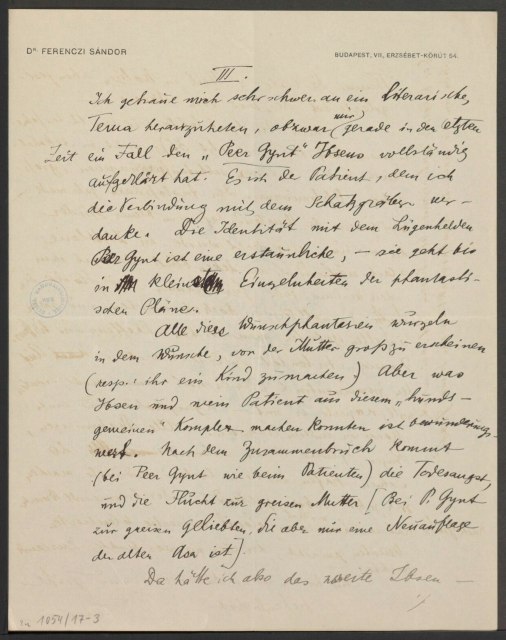 Dr. FERENCZI SÁNDOR
BUDAPEST, VII, ERZSÉBET-KÖRÚT 54.
III.
Ich getraue mich sehr schwer an ein Literarisches
Tema heranzutreten, obzwar mir gerade in den letzten
Zeit ein Fall den „Peer Gynt" Ibsens vollständig
aufgeklärt hat. Es ist de Patient, dem ich
die Verbindung mit dem Schatzgräber ver-
danke. Die Identität mit dem Lügenhelden
Peer Gynt ist eine erstaunliche, – sie geht bis
in kleinste Einzelnheiten der phantasti-
schen Pläne.
Alle diese Wunschphantasien wurzeln
in dem Wunsche, von der Mutter gross zu erscheinen
(resp.: ihr ein Kind zu machen) Aber was
Ibsen und mein Patient aus diesem „hunds-
gemeinen" Komplex machen konnten ist bewunderungs-
wert. Nach dem Zusammenbruch kommt
(bei Peer Gynt wie beim Patienten) die Todesangst,
und die Flucht zur greisen Mutter [Bei P. Gynt
zur greisen Geliebten, die aber nur eine Neuauflage
der alten Asa ist].
Da hätte ich also das zweite Ibsen-
1054/17-3